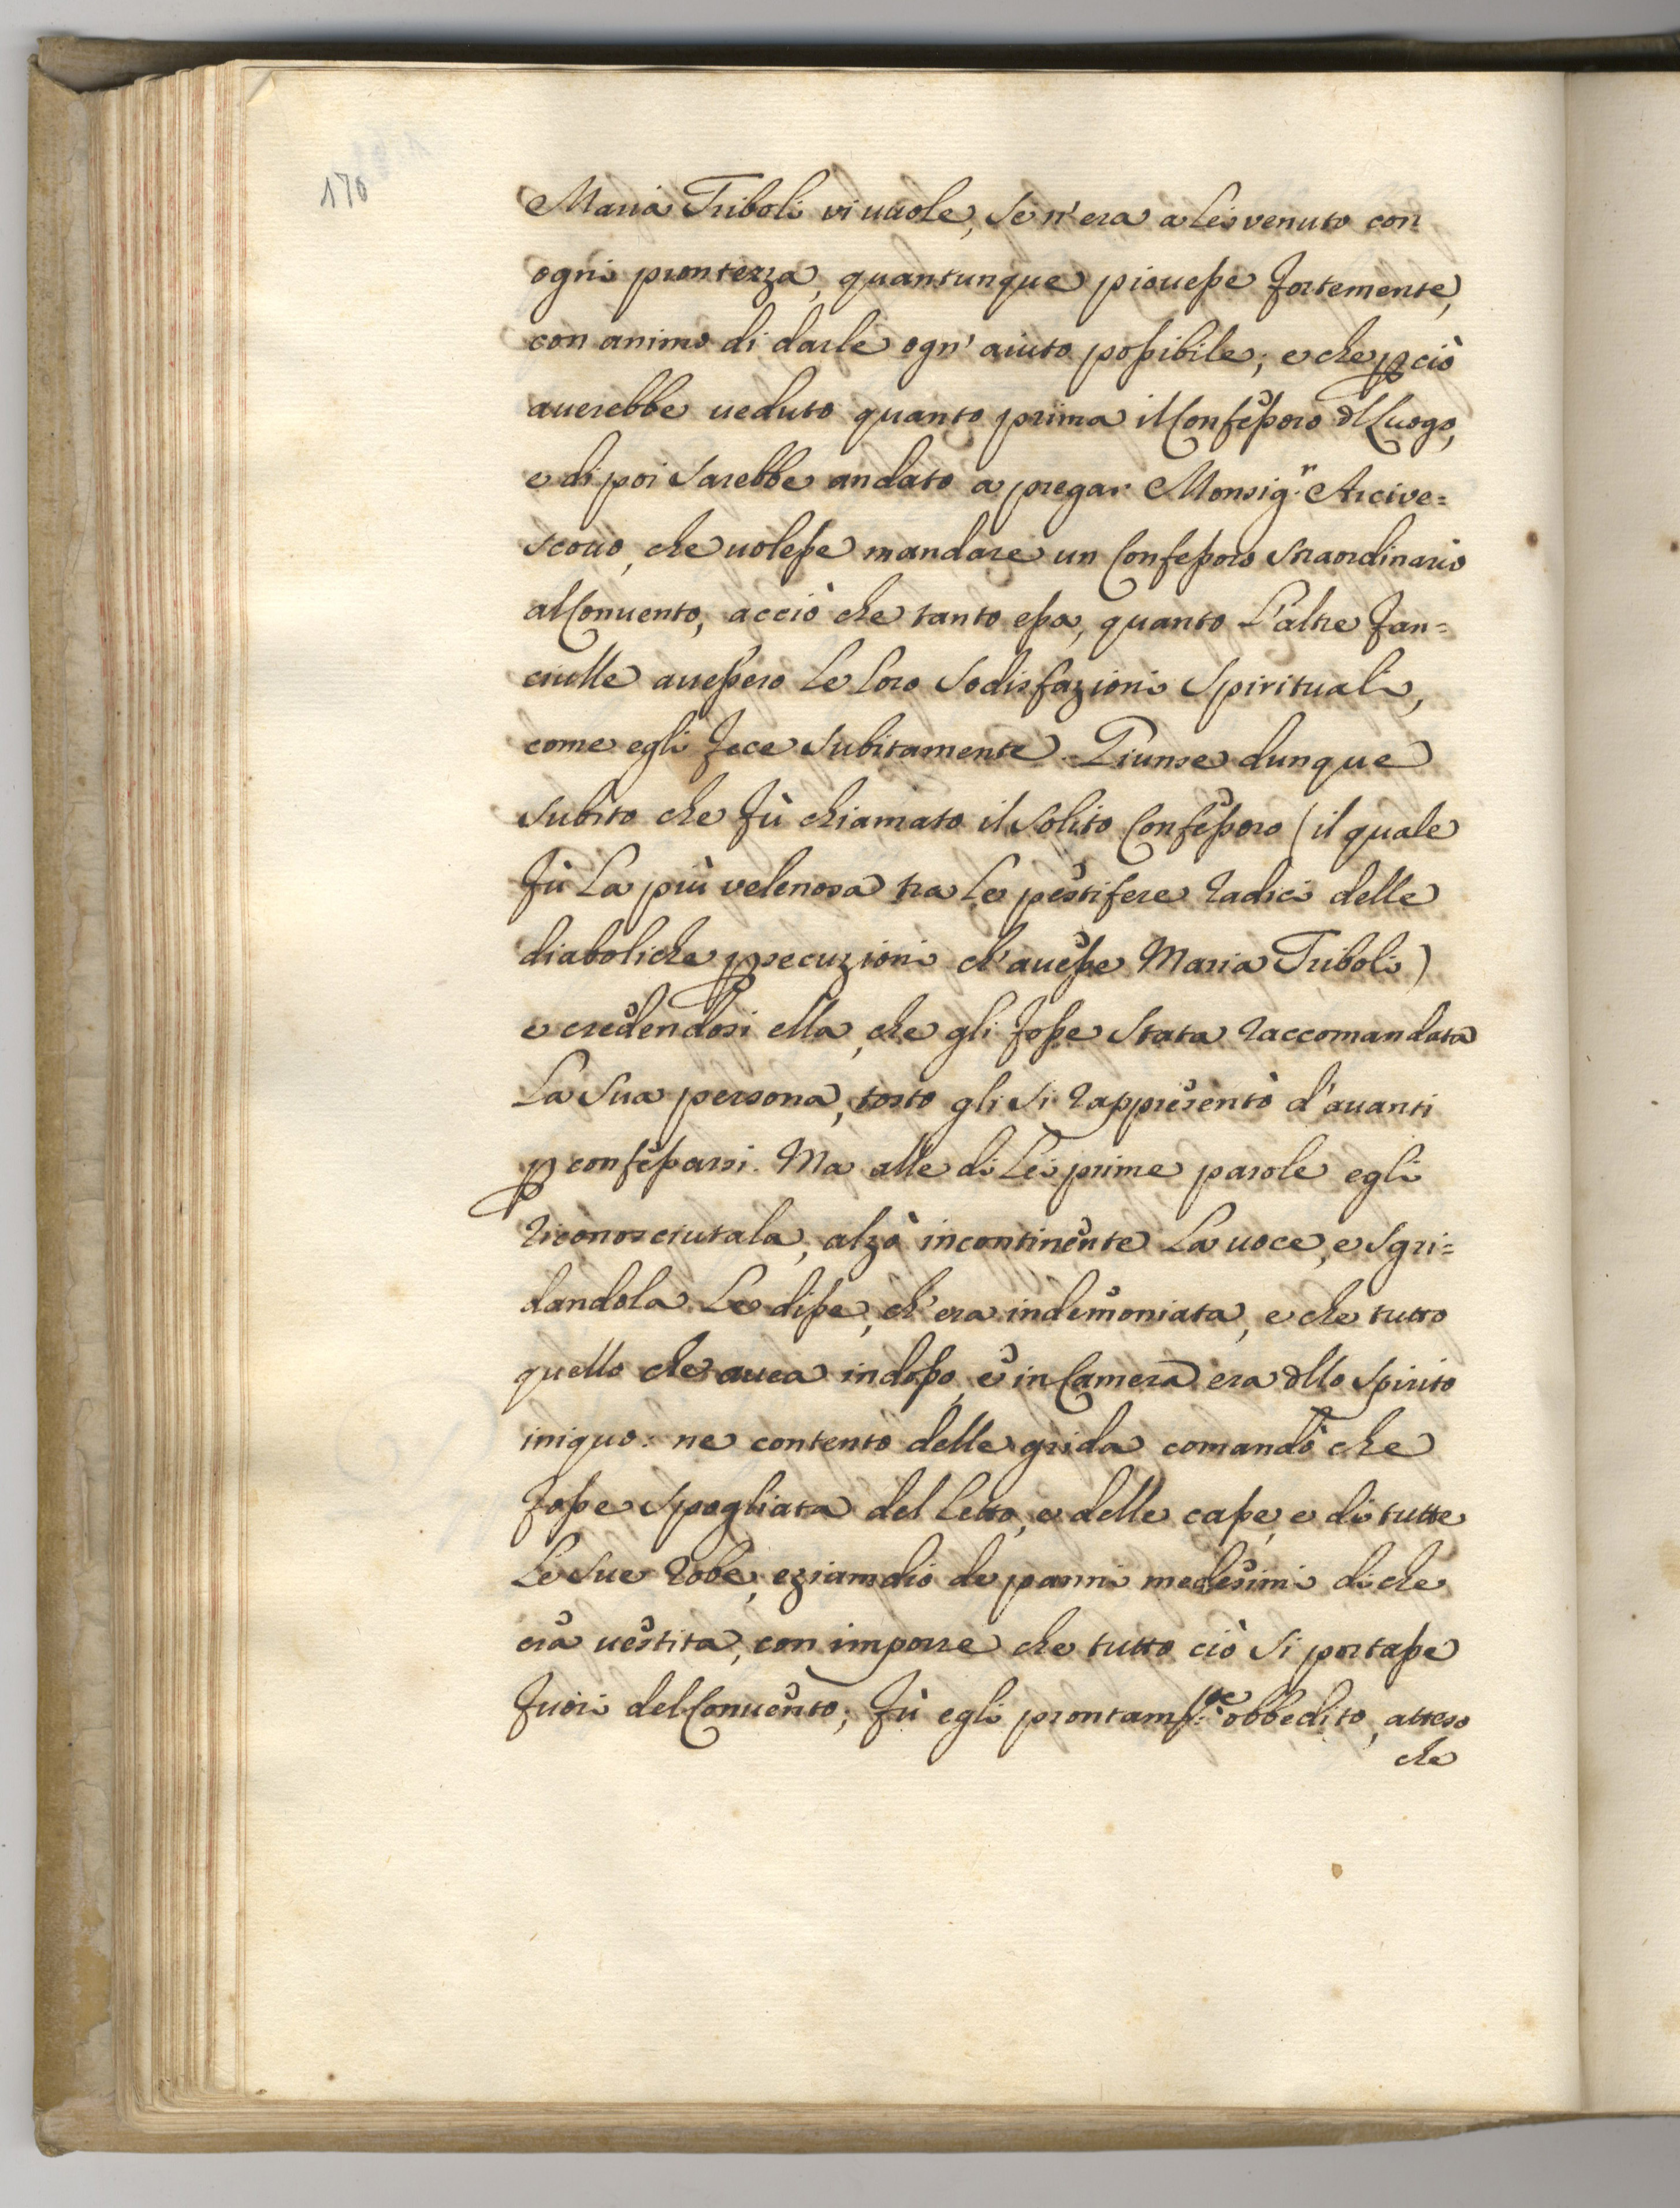 170
Maria Triboli vi uuole, se n'era a Lei venuto con
ogni prontezza, quantunque piouesse fortemente,
con animo di darle ogn' aiuto possibile; e che ꝑ ciò
auerebbe ueduto quanto prima il Confessoro dl Luogo,
e di poi sarebbe andato a pregar Monsig.r Arcive=
scouo, che uolesse mandare un Confessoro straordinario
al Conuento, acciò che tanto essa, quanto L'altre fan=
ciulle auessero Le Loro sodisfazioni spirituali,
come egli fece subitamente. Giunse dunque
subito che fù chiamato il solito Confessoro (il quale
fù La più velenosa tra Le pestifere radici delle
diaboliche ꝑsecuzioni ch'auesse Maria Triboli)
e credendosi ella, che gli fosse stata raccomandata
La sua persona, tosto gli si rappresentò d'auanti
ꝑ confessarsi. Ma alle di Lei prime parole egli
riconosciutala, alzò incontinente La uoce, e sgri=
dandola Le disse, ch'era indemoniata, e che tutto
quello che auea indosso, e in Camera era dllo spirito
iniquo: ne contento delle grida comandò che
fosse spogliata del Letto, e delle casse, e di tutte
Le sue robe, eziamdio de panni medesimi di che
era uestita, con imporre che tutto ciò si portasse
fuori del Conuento; fù egli prontam.te obbedito, atteso
che